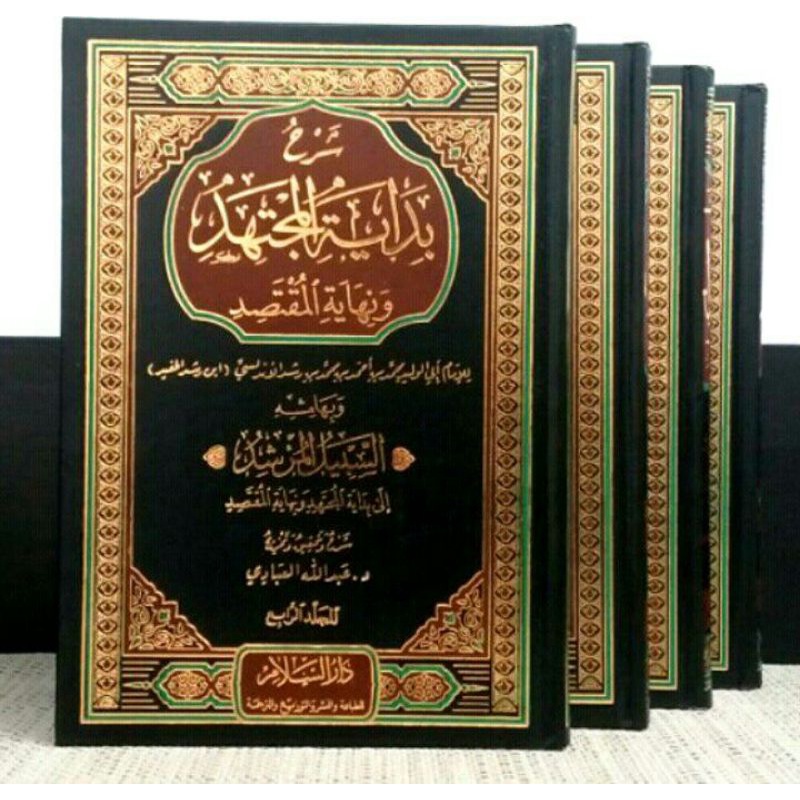 شَرْحُ
بِدَايَةِ المُجْتَهِدِ
وَنِهَايَةِ المُقْتَصِدِ
للإمام أبي الوليد محمد بن أحمد بن محمد بن رشد الأندلسي (ابن رشد الحفيد)
وبهامشه
السَّبِيلُ المُرْشِدُ
إلى بداية المجتهد ونهاية المقتصد
شرح وتحقيق وتخريج
د. عبد الله العبادي
المجلد الرابع
دار السلام
للطباعة والنشر والتوزيع والترجمة